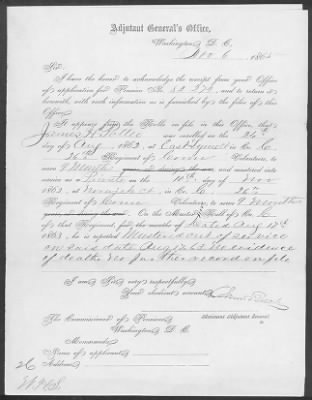 Adjutant General's Office,
Washington, D. C.
Nov 6 1865
Sir:
I have the honor to acknowledge the receipt from your Office
of application for Pension No. 82.272, and to return it
herewith, with such information as is furnished by the files of this
Office.
It appears from the Rolls on file in this Office, that
James H was enrolled on the
day of Aug 1862, at East Lyme Ct in Co. C
26th Regiment of Conn Volunteers, to
serve 9 Months years, or during the war, and mustered into
service as a Private on the day of Nov
1862, at Norwich Ct, in Co. C, 26th
Regiment of Conn Volunteers, to serve 9 Months
years, or during the war. On the Muster Out Roll of Co. C
of that Regiment, dated Aug 17th
1863, he is reported Mustered out of service
on said date Aug 17, 63 No evidence
of death No further record on file
I am, Sir, very respectfully,
Your obedient servant,
Assistant Adjutant General.
The Commissioner of Pensions,
Washington, D. C.
Memoranda:
Name of applicant
Address
26